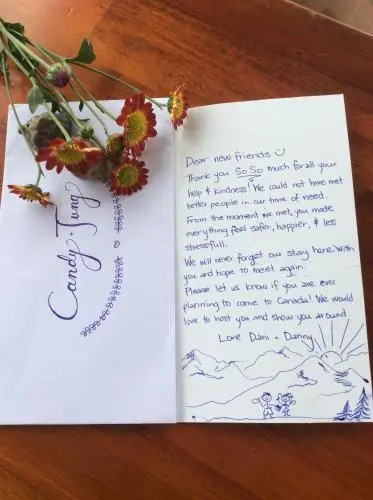 Candy + Tung
Dear new friends
Thank you So So much for all your
help & kindness! We could not have met
better people in our time of need.
From the moment we met, you made
everything feel safer, happier, & less
stressfull.
We will never forget our stay here with
you and hope to meet again.
Please let us know if you are ever
planning to come to Canada! We would
love to host you and show you around.
Love Dani + Danny